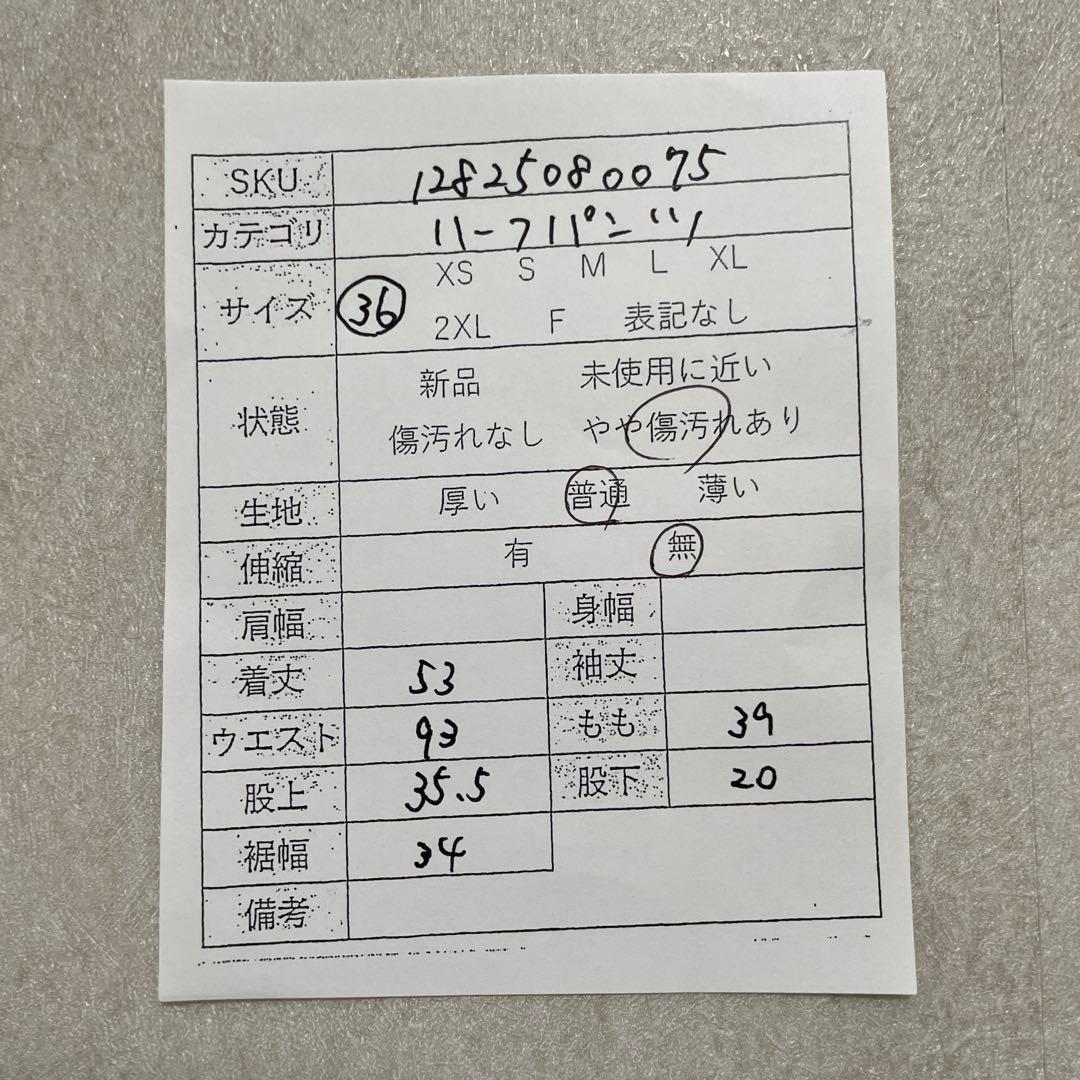 SKU 12825080075
カテゴリ ハーフパンツ
XS S M L XL
サイズ 36
2XL F 表記なし
新品 未使用に近い
状態
傷汚れなし やや傷汚れあり
生地 厚い 普通 薄い
伸縮 有 無
肩幅 身幅
着丈 53 袖丈
ウエスト 93 もも 39
股上 35.5 股下 20
裾幅 34
備考